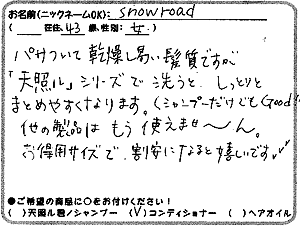 お名前(ニックネームOK): snowroad
( 在住、43歳、性別: 女 )
パサついて乾燥し易い髪質ですが
「天照ル」シリーズで洗うと、しっとりと
まとめやすくなります。(シャンプーだけでもGood!)
他の製品はもう使えませ〜ん。
お得用サイズで、割安になると嬉しいです。
●ご希望の商品に○をお付けください!
( )天照ル君ノシャンプー (V)コンディショナー ( )ヘアオイル